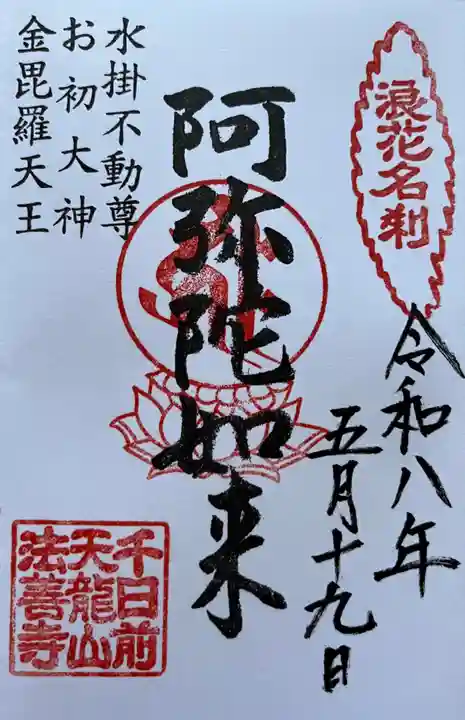 浪花名刹
令和八年
五月十九日
阿弥陀如来
水掛不動尊
お初大神
金毘羅天王
千日前
天龍山
法善寺